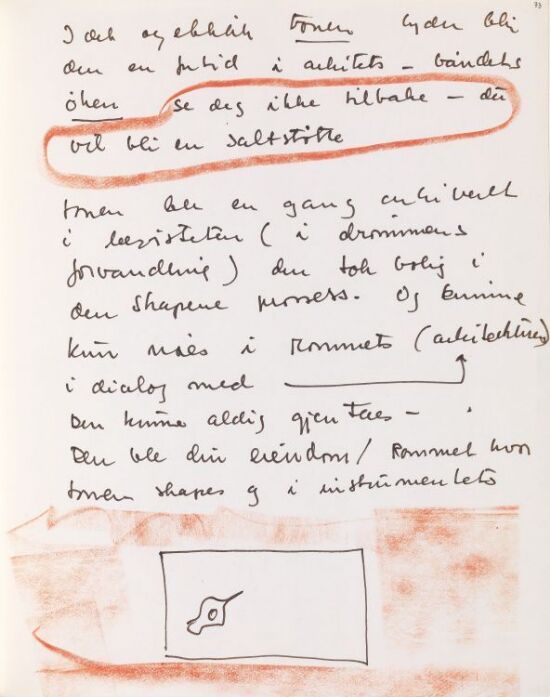 73
I det øyeblikk tonen lyder blir
den en fortid i arkivets – båndets
öken se deg ikke tilbake – du
vil bli en saltstøtte
tonen ble en gang arkivert
i bevisstheten (i drømmens
forvandling) den tok bolig i
den skapende prosess. Og kunne
kun nåes i Rommets (arkitekturen)
i dialog med
Den kunne aldrig gjentaes –
Den ble din eiendom / Rommet hvor
tonen skapes og i instrumentets